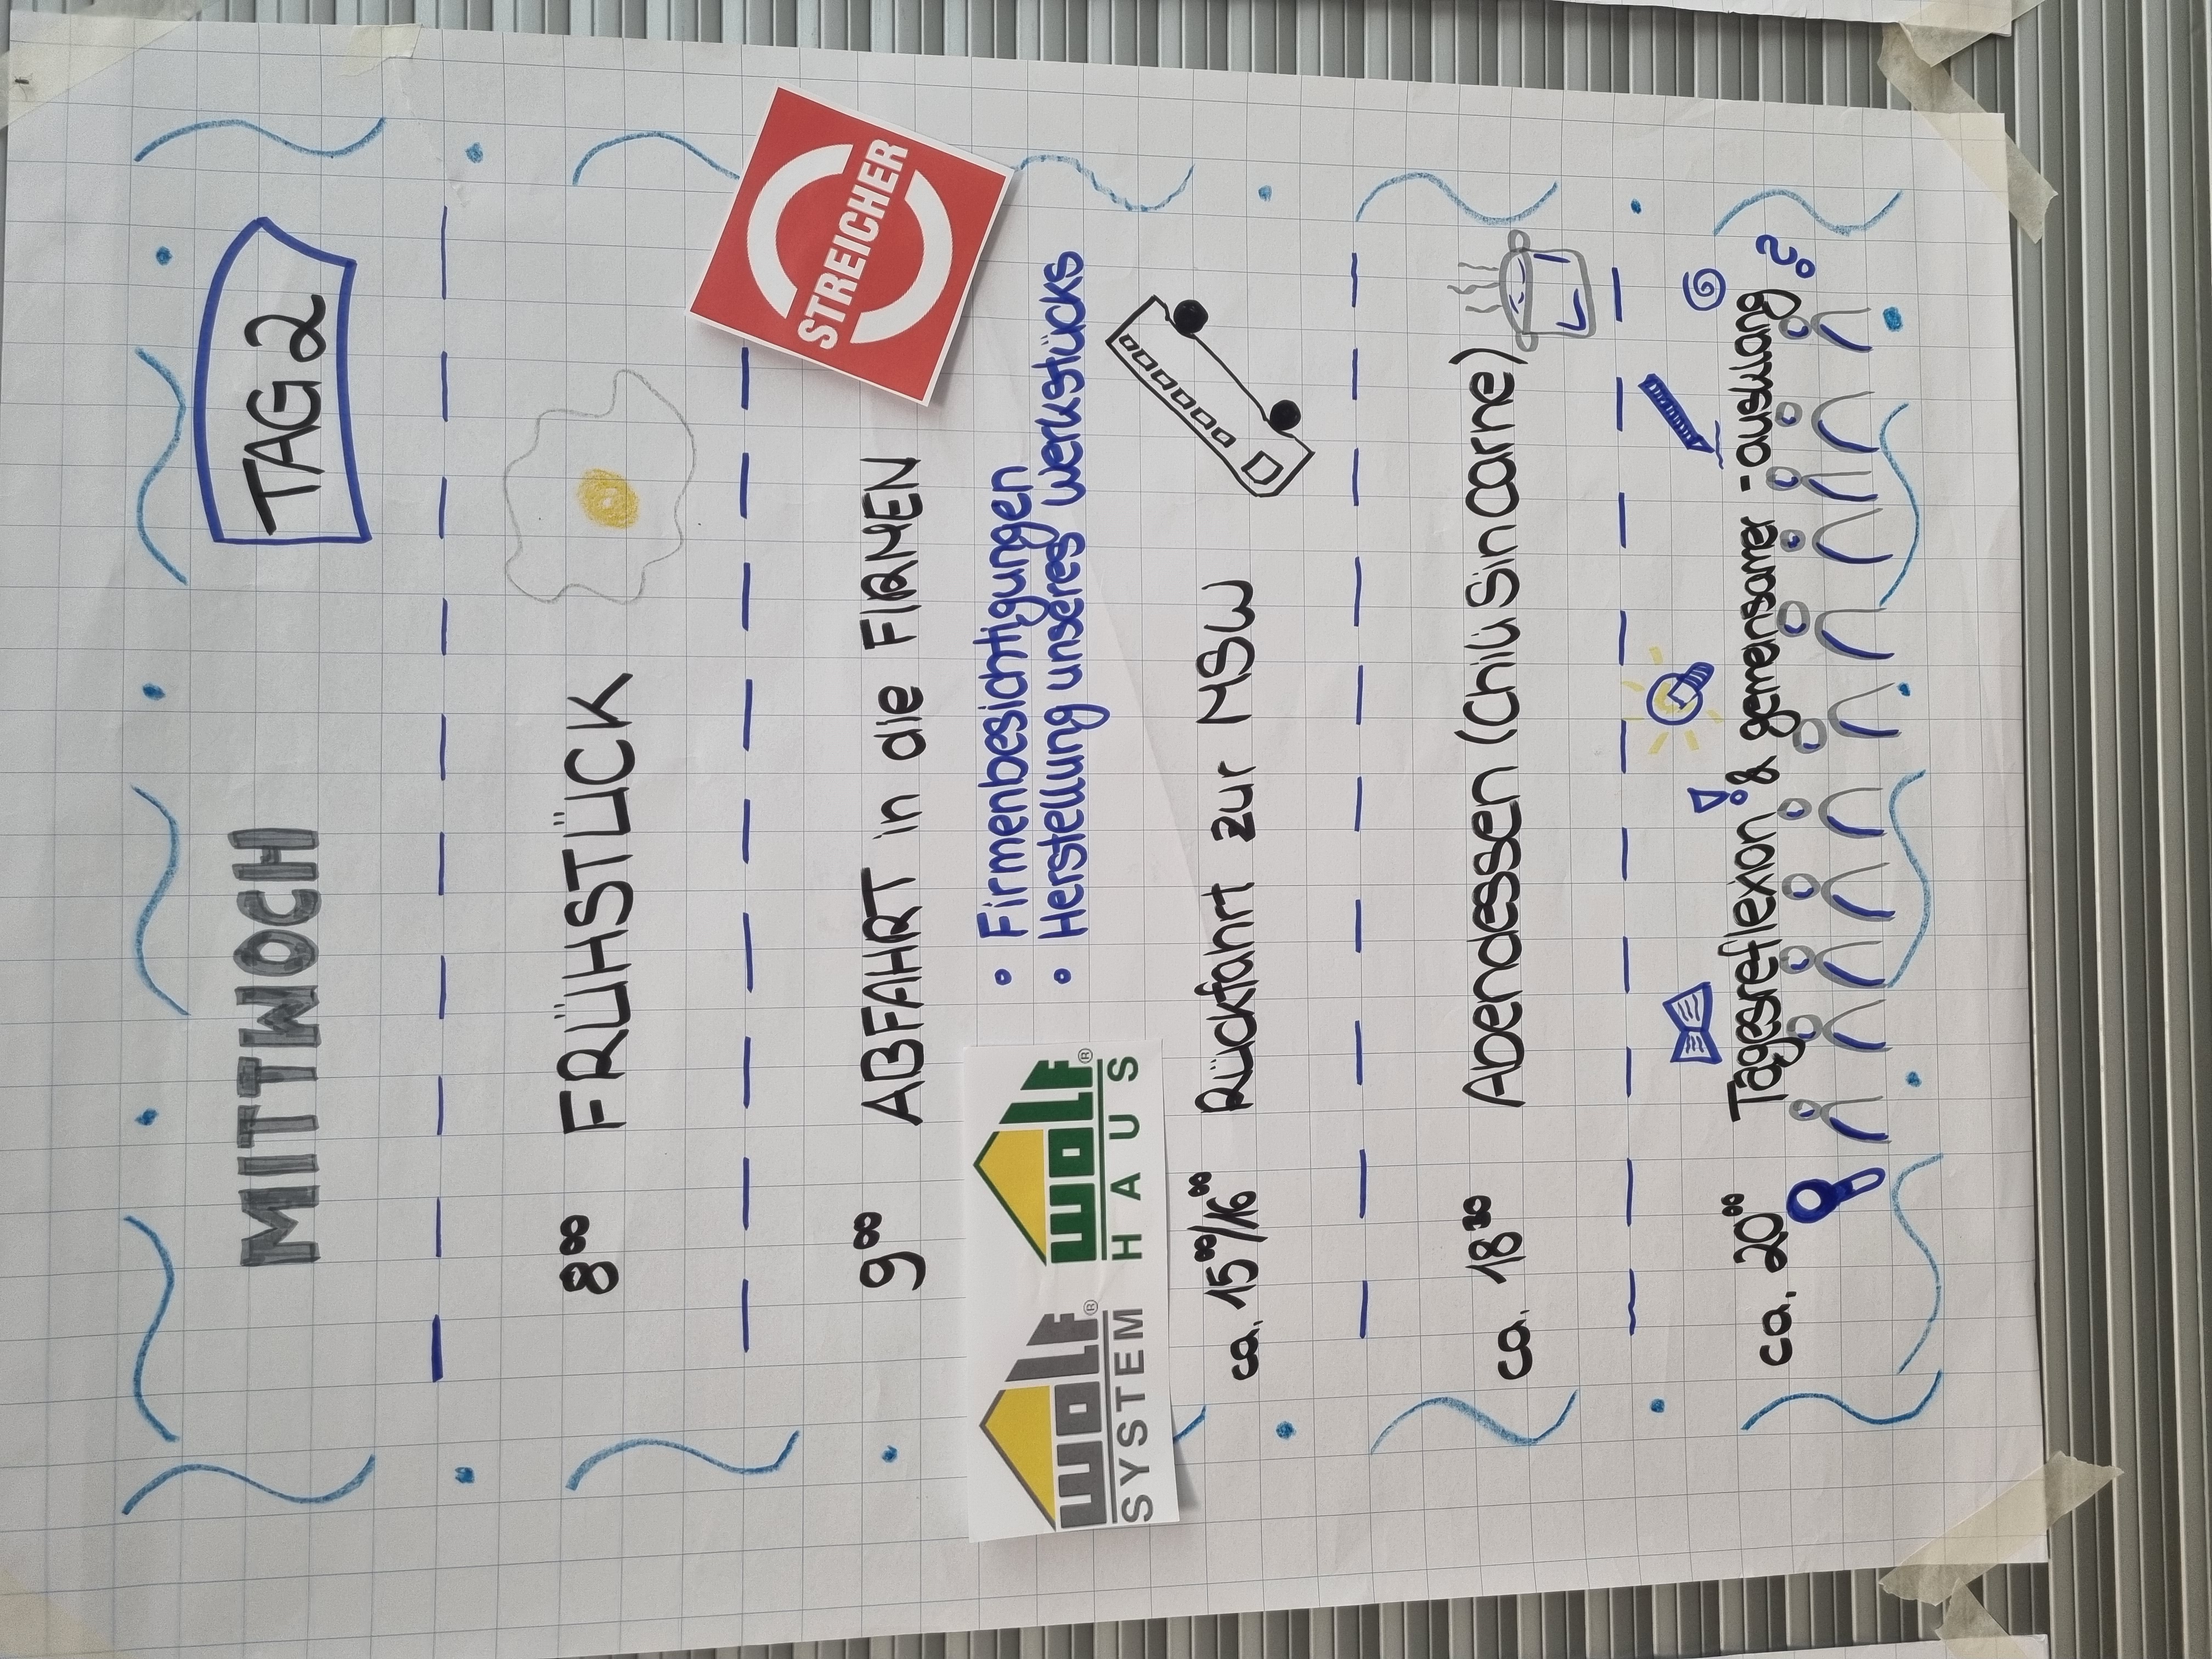 MITTWOCH TAG 2
8⁰⁰ FRÜHSTÜCK
9⁰⁰ ABFAHRT in die FIRMEN
STREICHER
• Firmenbesichtigungen
• Herstellung unseres Werkstücks
WOLF® SYSTEM
WOLF® HAUS
ca. 15⁰⁰/16⁰⁰ Rückfahrt zur MSW
ca. 18³⁰ Abendessen (Chili Sin Carne)
ca. 20⁰⁰ Tagesreflexion & gemeinsamer -ausklang